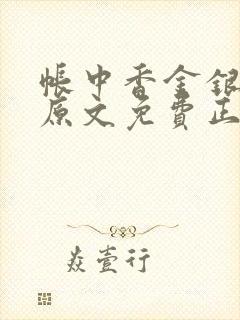 帳中香金銀
原文免費正
焱壹行